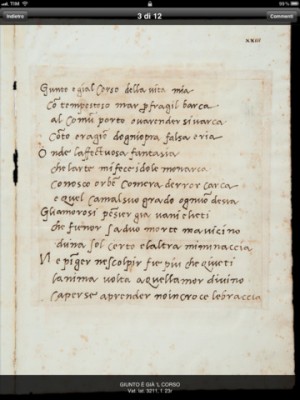 TIM
Indietro
3 di 12
Commenti
xxiii
Giunto e gial Corso della vita mia
Cō tempestoso mar p fragil barca
al Comū porto ovarender si varca
Cōto eragiō dogniopra falsa eria
Onde laffectuosa fantasia
che larte mi fece idol e monarca
Conosco or bē Comera derror carca
e quel Camalsuo grado ogniuō desia
Gliamorosi pēsier gia vani elieti
che fienor saduo morte mavicino
duna sol certo elaltra miminaccia
Ne pīger nescolpir fie piu che queti
lanima volta aquellamor divino
caperse aprender noi in croce lebraccia
GIUNTO È GIÀ 'L CORSO
Vat. lat. 3211, f. 23r